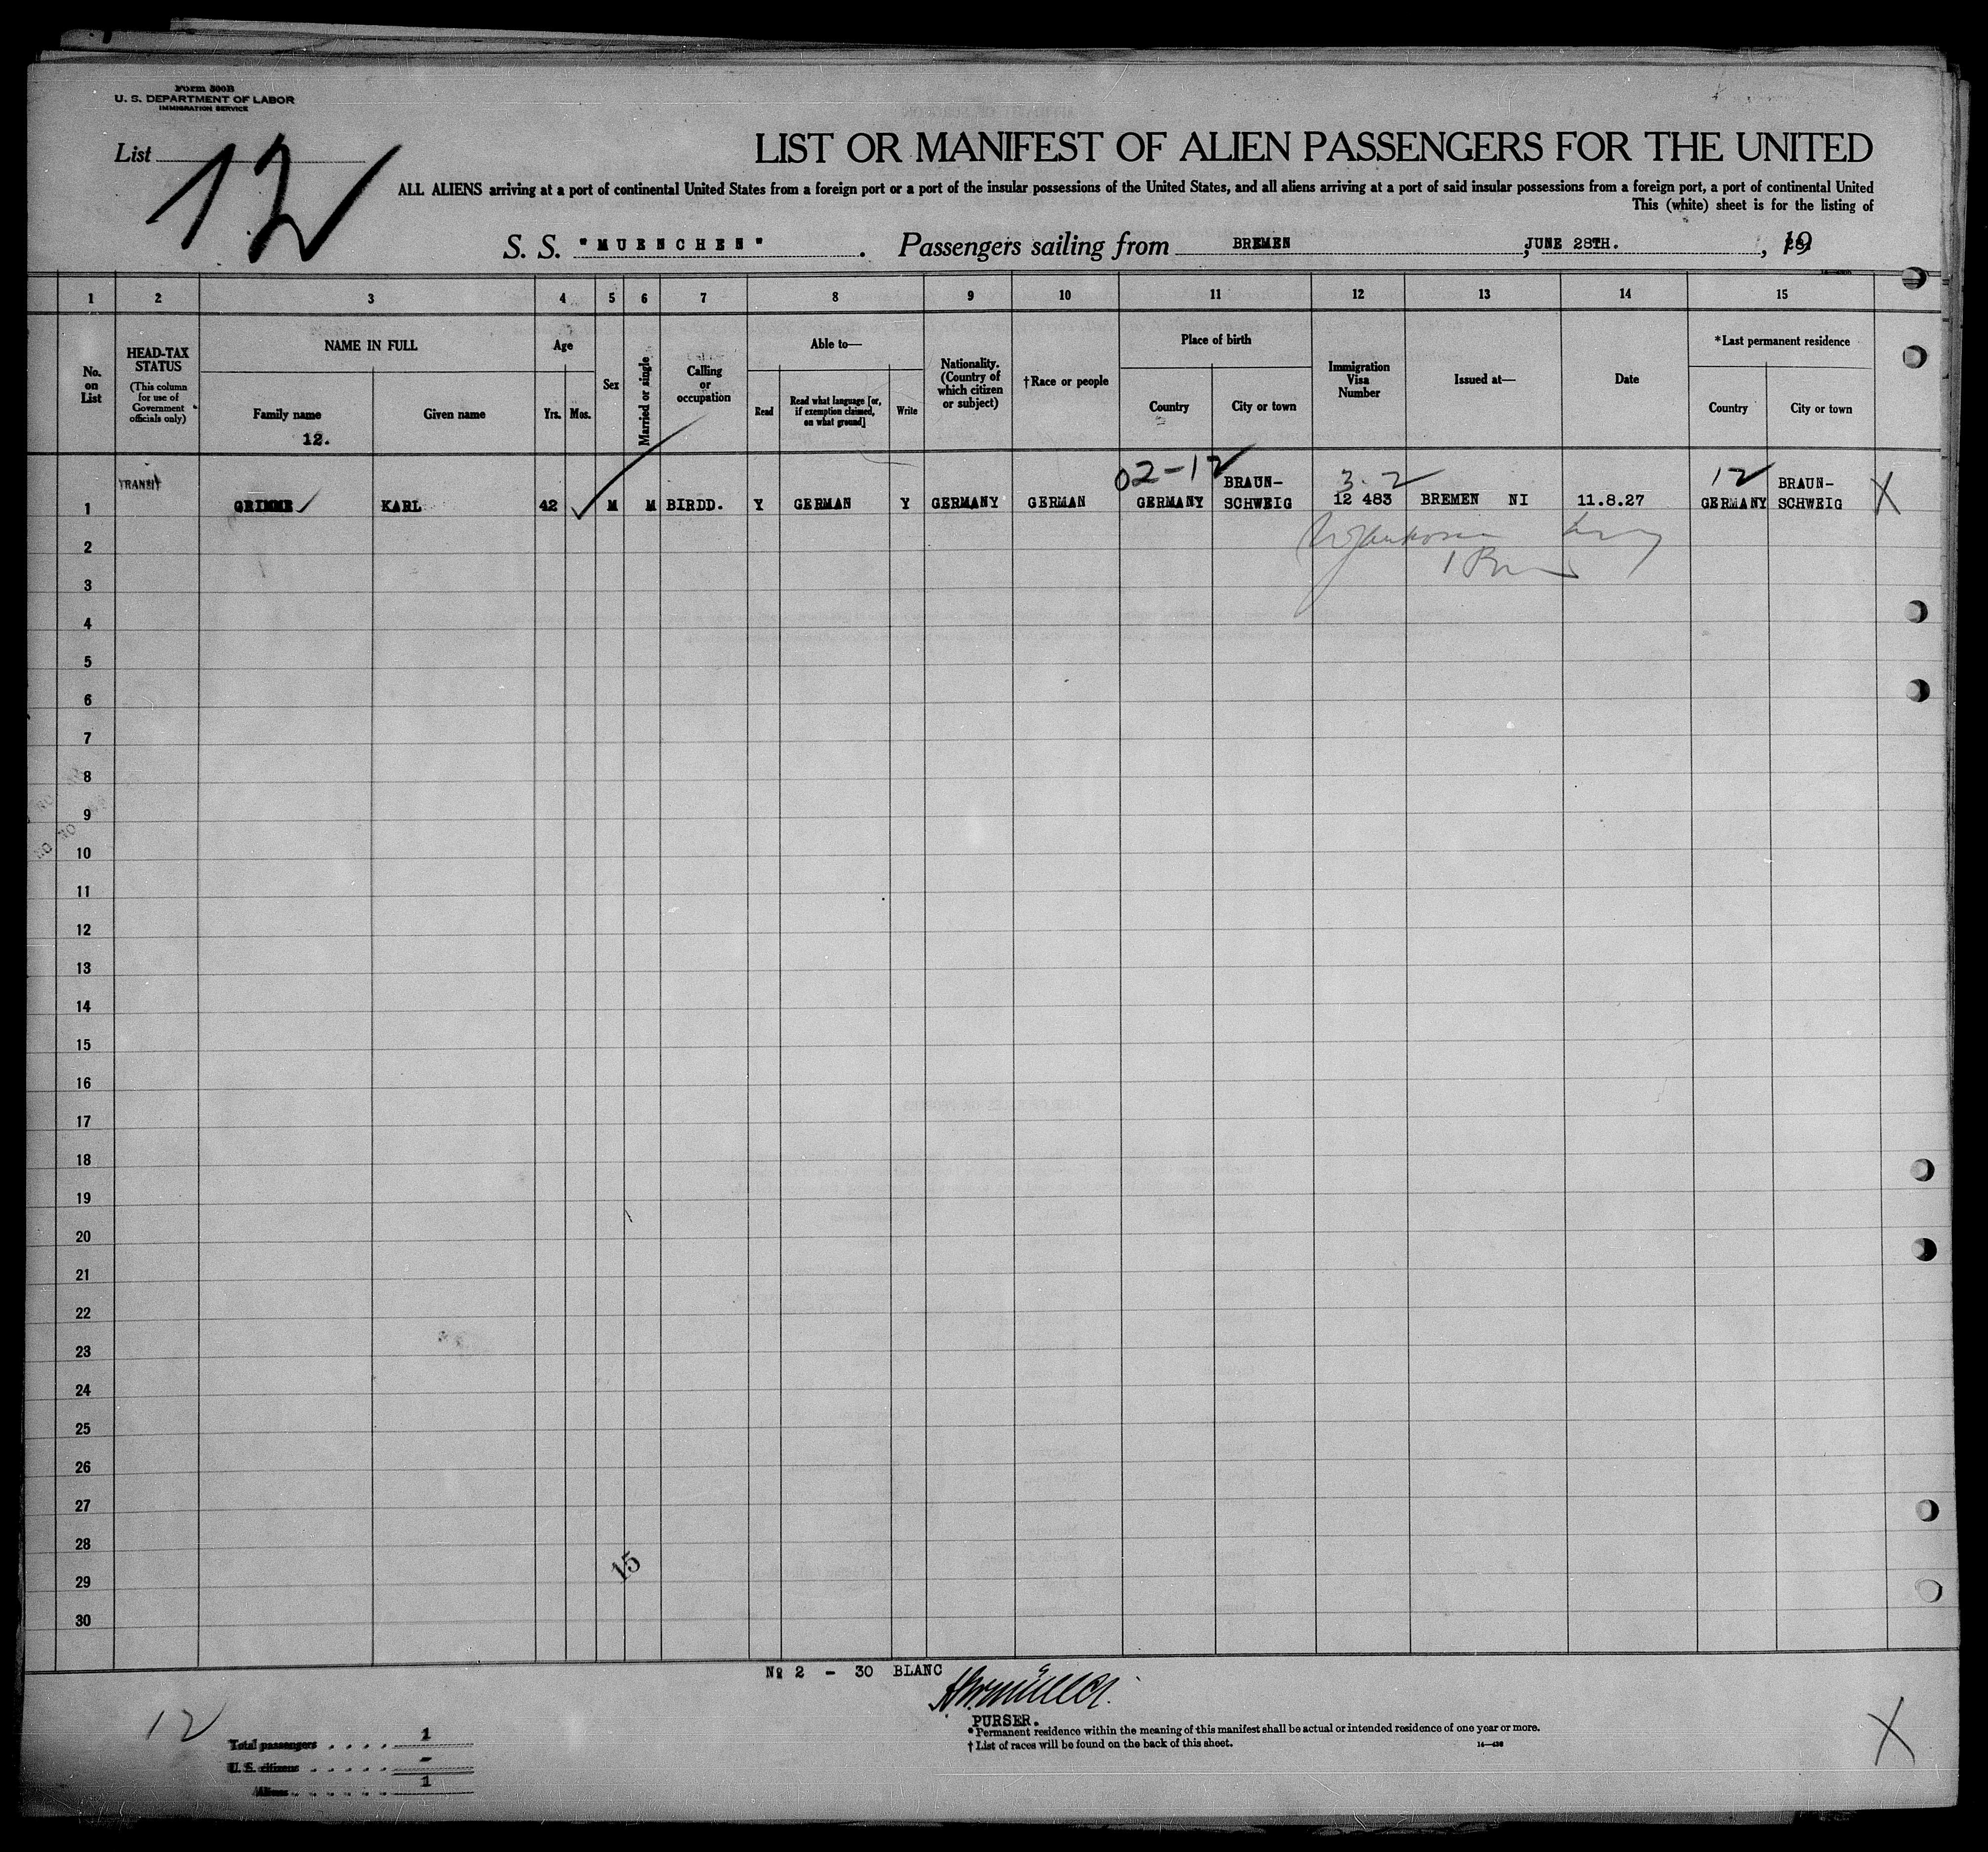 Form 500B
U. S. DEPARTMENT OF LABOR
IMMIGRATION SERVICE
List 12
LIST OR MANIFEST OF ALIEN PASSENGERS FOR THE UNITED
ALL ALIENS arriving at a port of continental United States from a foreign port or a port of the insular possessions of the United States, and all aliens arriving at a port of said insular possessions from a foreign port, a port of continental United
This (white) sheet is for the listing of
S. S. "MUENCHEN". Passengers sailing from BREMEN, JUNE 28TH., 19
1 2 3 4 5 6 7 8 9 10 11 12 13 14 15
No. on List
HEAD-TAX STATUS
(This column for use of Government officials only)
NAME IN FULL
Family name
Given name
12.
Age
Yrs. Mos.
Sex
Married or single
Calling or occupation
Able to—
Read
Read what language [or, if exemption claimed, on what ground]
Write
Nationality. (Country of which citizen or subject)
†Race or people
Place of birth
Country
City or town
Immigration Visa Number
Issued at—
Date
*Last permanent residence
Country
City or town
TRANSIT
02-12
3.2
12
1 GRIMME KARL 42 M M BIRDD. Y GERMAN Y GERMANY GERMAN GERMANY BRAUN-SCHWEIG 12 483 BREMEN NI 11.8.27 GERMANY BRAUN-SCHWEIG X
2
3
4
5
6
7
8
9
10
11
12
13
14
15
16
17
18
19
20
21
22
23
24
25
26
27
28
29
30
15
No 2 - 30 BLANC
PURSER.
12
Total passengers . . . . 1
U. S. citizens . . . . . -
Aliens . . . . . . 1
* Permanent residence within the meaning of this manifest shall be actual or intended residence of one year or more.
† List of races will be found on the back of this sheet.
14—430
X